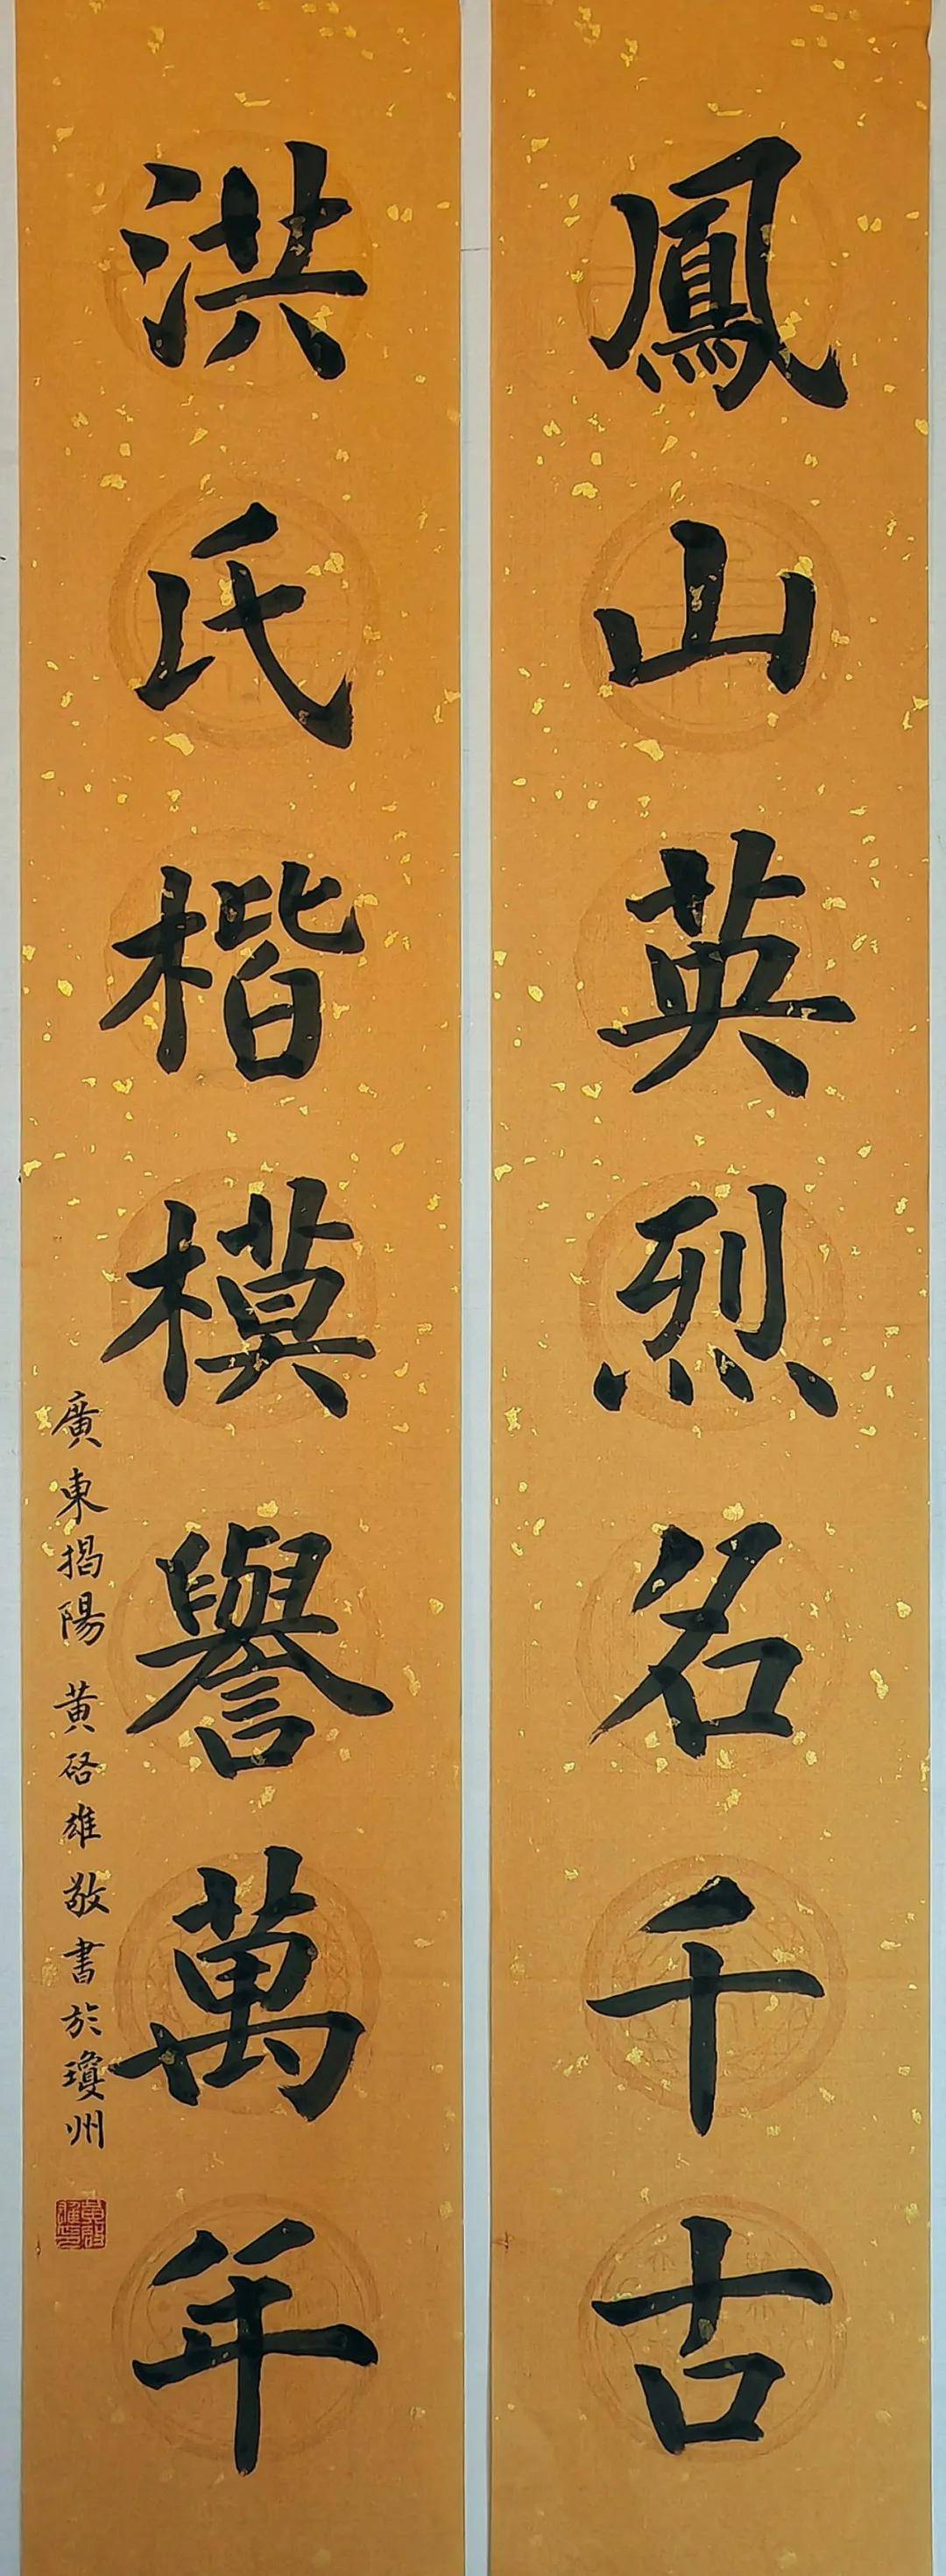 鳳山英烈名千古
洪氏楷模譽萬年
廣東揭陽 黄啓雄敬書於瓊州